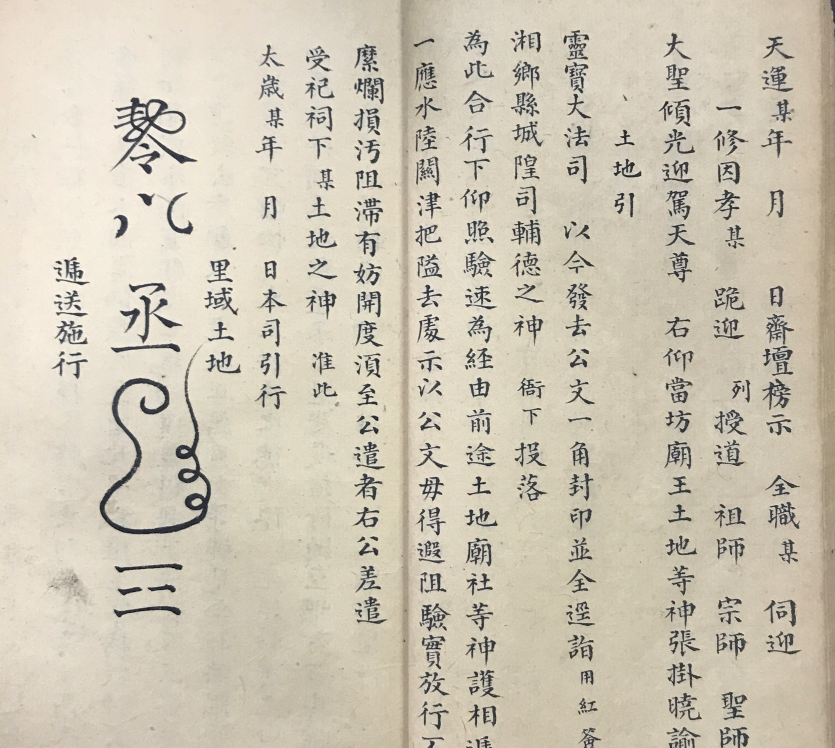 天運某年 月 日齋壇榜示 仝職某 伺迎
一修因孝某 跪迎 列授道 祖師 宗師 聖師
大聖傾光迎駕天尊 右仰當坊廟王土地等神張掛曉諭
土地引
靈寶大法司 以今發去公文一角封印並仝逕詣用紅簽
湘鄉縣城隍司輔德之神 衙下 投落
為此合行下仰照驗速為経由前途土地廟社等神護相遞
一應水陸關津把隘去處示以公文毋得遐阻驗實放行
糜爛損污阻滯有妨開度湏至公遣者右公差遣
受祀祠下某土地之神 准此
太歲某年 月 日本司引行
里域土地
遞送施行